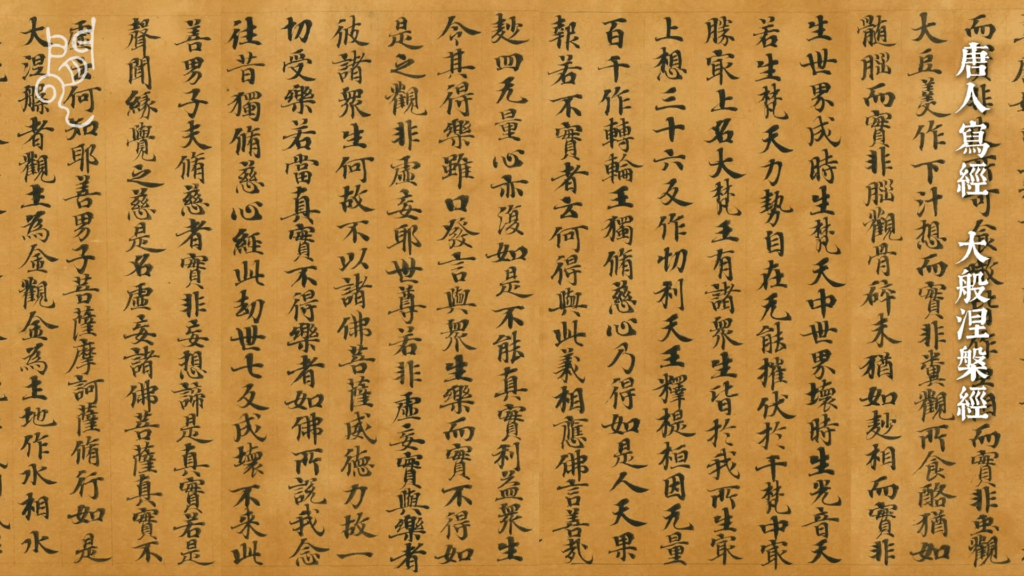 唐人寫經 大般涅槃經
而實非虫觀
大豆羹作下汁想而實非糞觀所食酪猶如
髓腦而實非腦觀骨碎末猶如麨相而實非
生世界成時生梵天中世界壞時生光音天
若生梵天力勢自在无能摧伏於千梵中㝡
勝㝡上名大梵王有諸衆生皆於我所生㝡
上想三十六反作忉利天王釋提桓因无量
百千作轉輪王獨脩慈心乃得如是人天果
報若不實者云何得與此義相應佛言善哉
麨四无量心亦復如是不能真實利益衆生
令其得樂雖口發言與衆生樂而實不得如
是之觀非虛妄耶世尊若非虛妄實與樂者
彼諸衆生何故不以諸佛菩薩威德力故一
切受樂若當真實不得樂者如佛所說我念
往昔獨脩慈心經此劫世七反成壞不来此
善男子夫脩慈者實非妄想諦是真實若是
聲聞緣覺之慈是名虛妄諸佛菩薩真實不
虛云何如耶善男子菩薩摩訶薩脩行如是
大涅槃者觀土為金觀金為土地作水相水